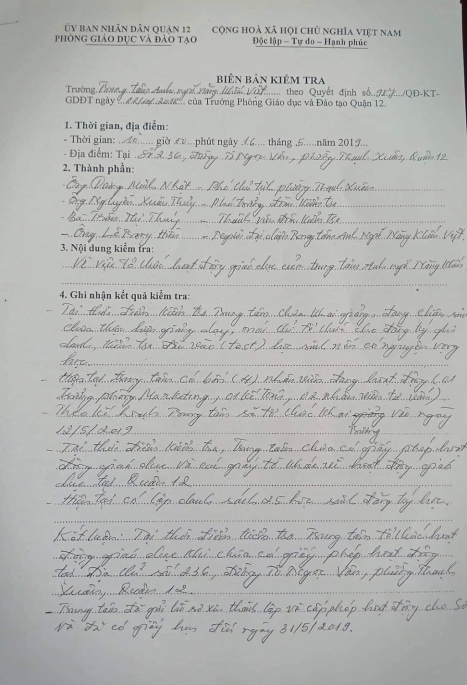 ỦY BAN NHÂN DÂN QUẬN 12
PHÒNG GIÁO DỤC VÀ ĐÀO TẠO
CỘNG HOÀ XÃ HỘI CHỦ NGHĨA VIỆT NAM
Độc lập – Tự do – Hạnh phúc
BIÊN BẢN KIỂM TRA
Trường Trung tâm Anh ngữ Năng Khiếu Việt theo Quyết định số /QĐ-KT-
GDĐT ngày của Trưởng Phòng Giáo dục và Đào tạo Quận 12.
1. Thời gian, địa điểm:
- Thời gian: 10 giờ 10 phút ngày 16 tháng 5 năm 2019
- Địa điểm: Tại Số 236, đường Tô Ngọc Vân, phường Thạnh Xuân, Quận 12
2. Thành phần:
- Ông Dương Minh Nhật - Phó Chủ tịch phường Thạnh Xuân
- Ông Nguyễn Xuân Thủy - Phó trưởng đoàn kiểm tra
- Bà Trần Thị Thúy - Thành viên đoàn kiểm tra
- Ông Lê Hiền - Người đại diện Trung tâm Anh Ngữ Năng Khiếu Việt.
3. Nội dung kiểm tra:
Về việc tổ chức hoạt động giáo dục của trung tâm Anh ngữ Năng Khiếu
4. Ghi nhận kết quả kiểm tra:
- Tại thời điểm kiểm tra Trung tâm chưa khai giảng, đang chiêu sinh
chưa thực hiện giảng dạy, mới chỉ tổ chức cho đăng ký ghi
danh, kiểm tra đầu vào (test) học sinh nếu có nguyện vọng
học
- Hiện tại trung tâm có bốn (4) nhân viên đang hoạt động (01
trưởng phòng Marketing, 01 kế toán, 02 nhân viên tư vấn)
- Theo kế hoạch Trung tâm sẽ tổ chức khai trương vào ngày
12/5/2019
- Tại thời điểm kiểm tra, Trung tâm chưa có giấy phép hoạt
động giáo dục và các giấy tờ khác về hoạt động giáo
dục tại Quận 12
- Hiện tại có lập danh sách 25 học sinh đăng ký học.
Kết luận: Tại thời điểm kiểm tra Trung tâm tổ chức hoạt
động giáo dục khi chưa có giấy phép hoạt động
tại địa chỉ số 236, đường Tô Ngọc Vân, phường Thạnh
Xuân, Quận 12
- Trung tâm đã gửi hồ sơ xin thành lập và cấp phép hoạt động cho Sở
và đã có giấy hẹn đến ngày 31/5/2019.